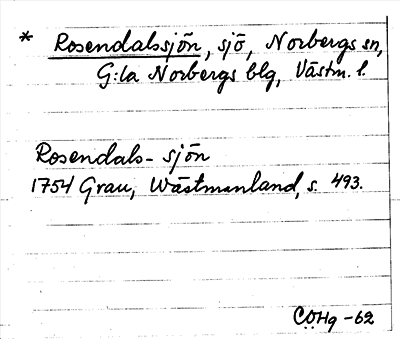 * Rosendalssjön, sjö, Norbergs sn,
G:la Norbergs blg, Västm. l.
Rosendals-sjön
1754 Grau, Wästmanland, s. 493.
CÖHg -62